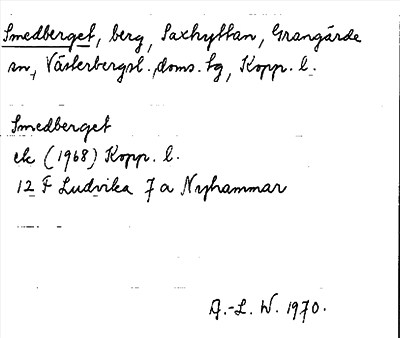 Smedberget, berg, Saxhyttan, Grangärde
sn, Västerbergsl. doms. tg, Kopp. l.
Smedberget
ek (1968) Kopp. l.
12 F Ludvika 7 a Nyhammar
A.-L. W. 1970.